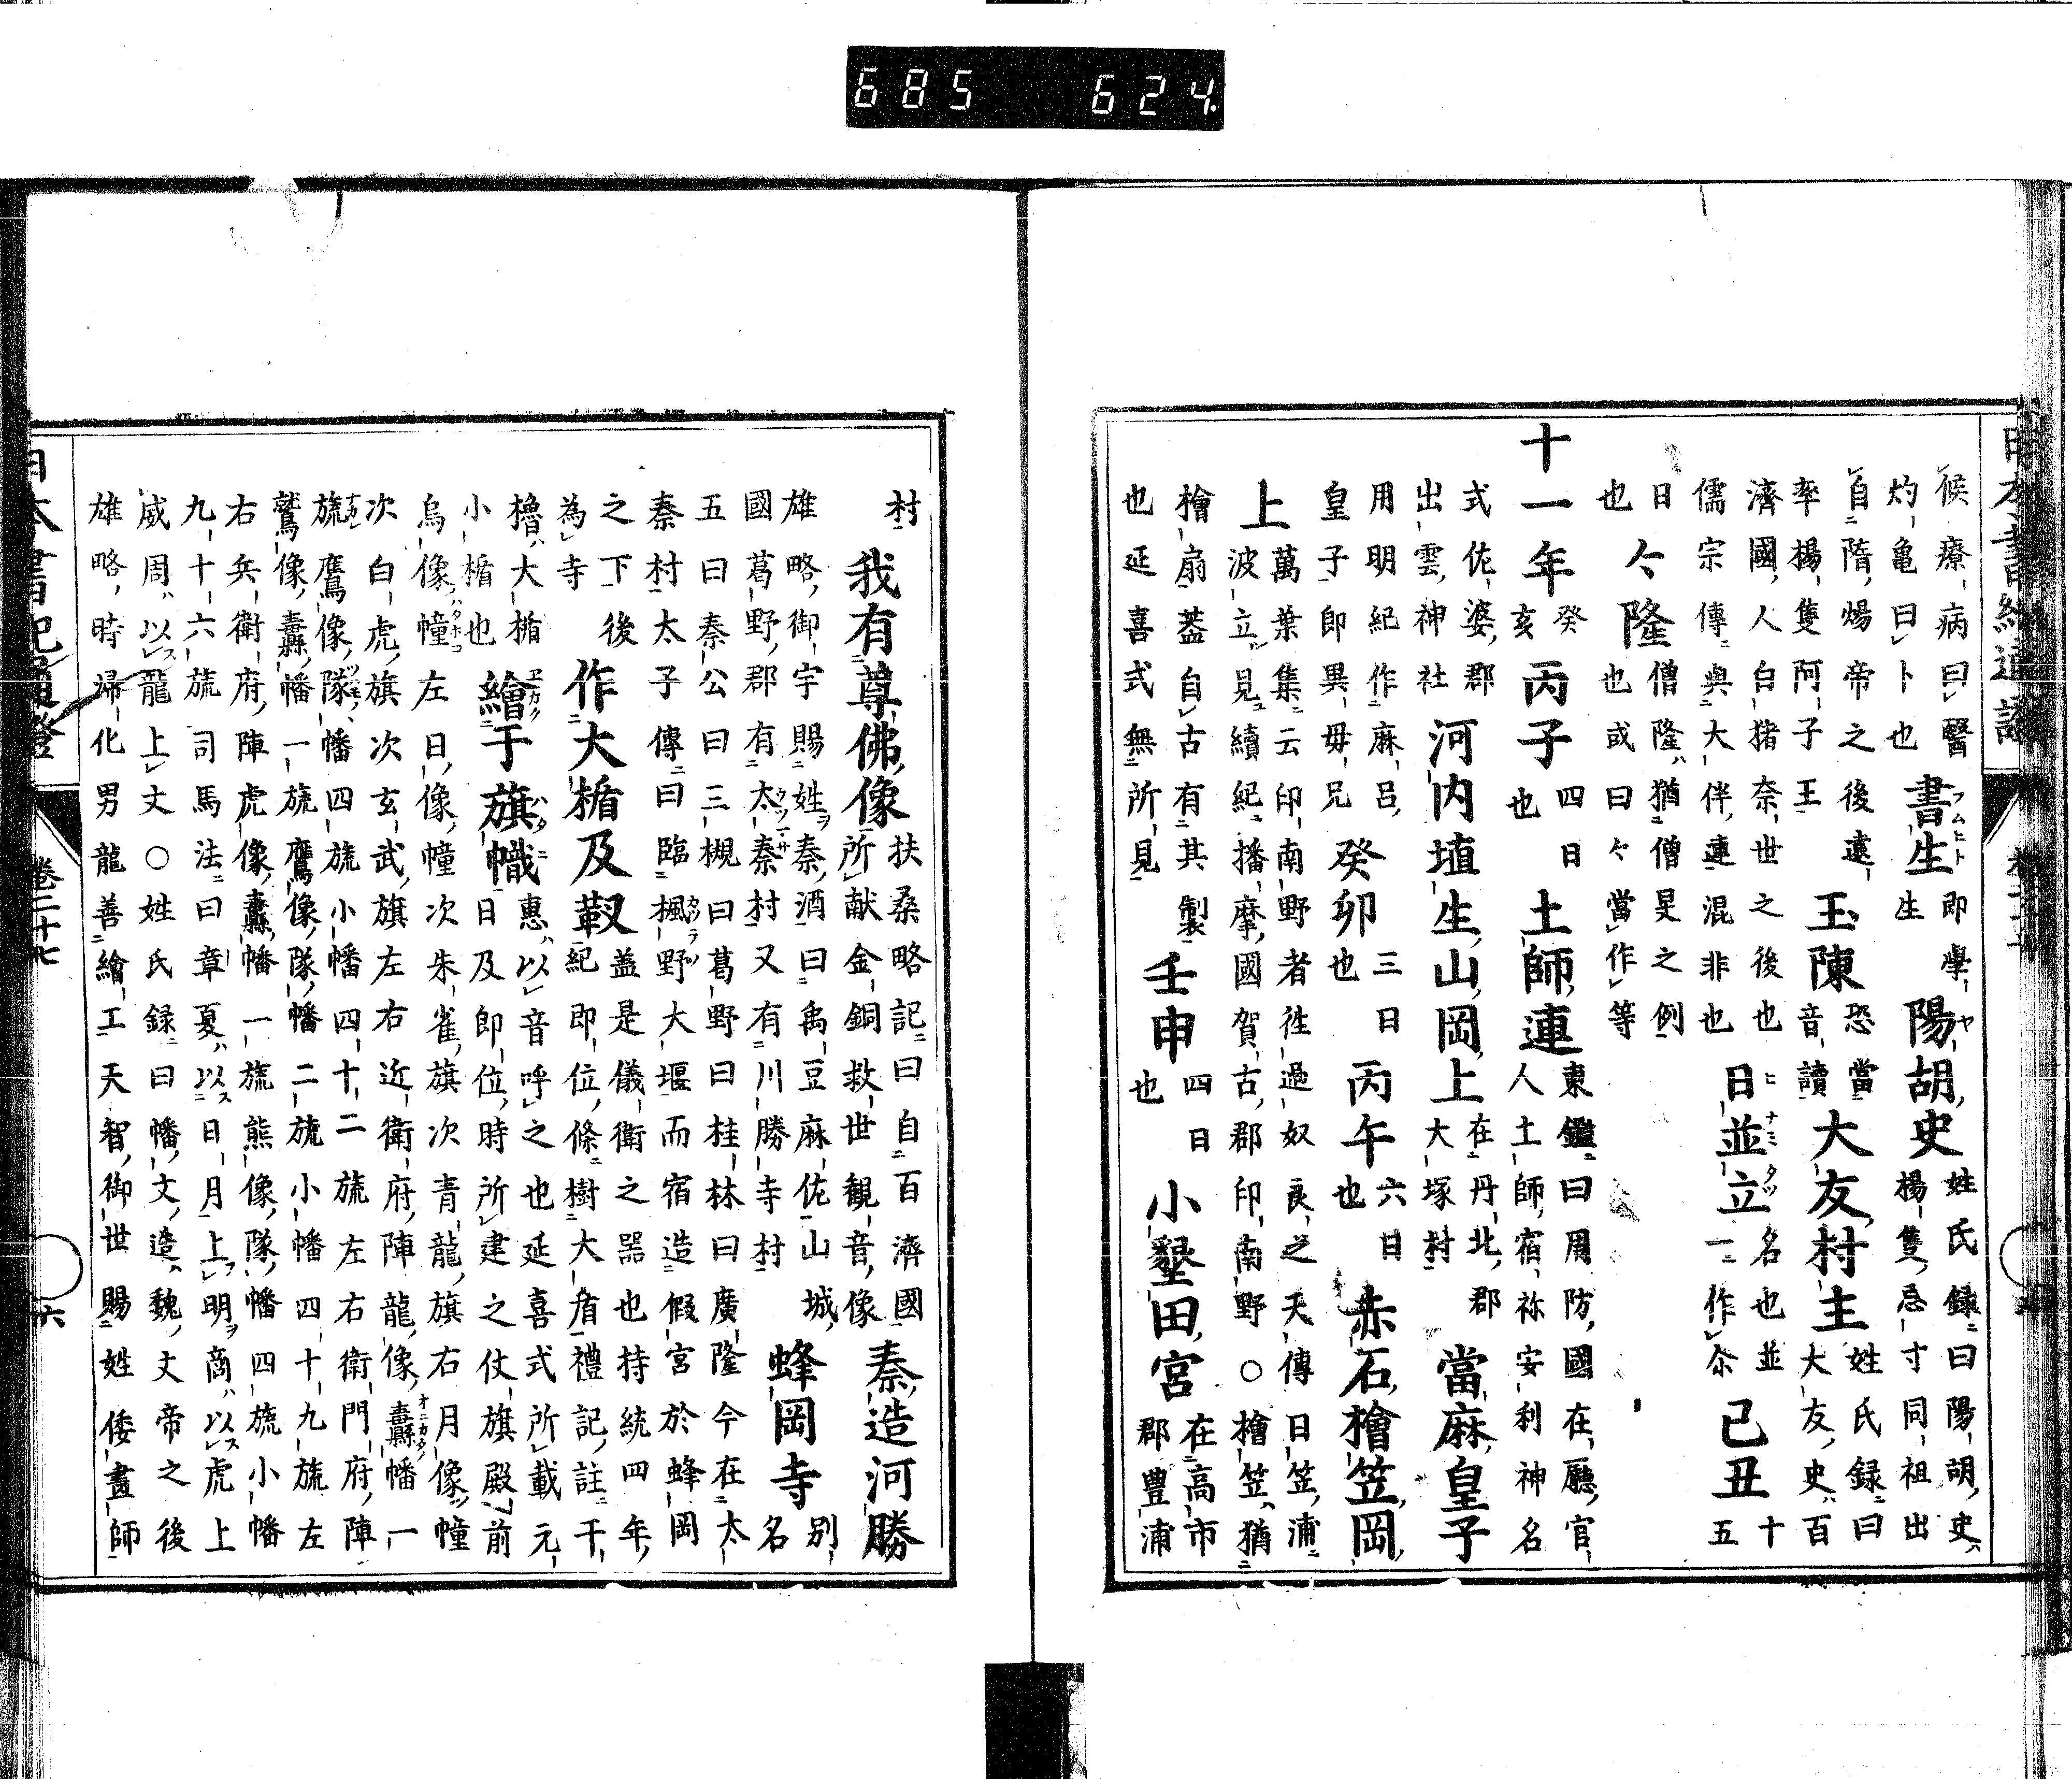 候療病曰醫
灼亀曰卜也
書生
即學
生
陽胡史
姓氏録曰陽胡史
楊隻忌寸同祖出
自隋煬帝之後達
率楊隻阿子王
玉陳
恐當
音讀
大友村主
姓氏録曰
大友史百
濟國人白猪奈世之後也
儒宗傳與大伴連混非也
日並立
名也並
一作尒
己丑
十
五
日
也
々隆
僧隆猶僧旻之例
也或曰々當作等
十一年
癸
亥
丙子
四日
也
土師連
東鑑曰周防國在廳官
人土師宿祢安利神名
式佐婆郡
出雲神社
河内埴生山岡上
在丹北郡
大塚村
當麻皇子
用明紀作麻呂
皇子即異毋兄
癸卯
三日
也
丙午
六日
也
赤石檜笠岡
上
萬葉集云印南野者徃過奴良之天傳日笠浦
波立見續紀播摩國賀古郡印南野○檜笠猶
檜扇葢自古有其製
也延喜式無所見
壬申
四日
也
小墾田宮
在高市
郡豊浦
村
我有尊佛像
扶桑略記曰自百濟國
所献金銅救世観音像
秦造河勝
雄略御宇賜姓秦酒曰禹豆麻佐山城
國葛野郡有太秦村又有川勝寺村
蜂岡寺
別
名
五曰秦公曰三槻曰葛野曰桂林曰廣隆今在太
秦村太子傳曰臨楓野大堰而宿造假宮於蜂岡
之下後
為寺
作大楯及靫
盖是儀衛之器也持統四年
紀即位條樹大盾禮記註干
櫓大楯
小楯也
繪于旗幟
惠以音呼之也延喜式所載元
日及即位時所建之仗旗殿前
烏像幢左日像幢次朱雀旗次青龍旗右月像幢
次白虎旗次玄武旗左右近衛府陣龍像纛幡一
旒鷹像隊幡四旒小幡四十二旒左右衛門府陣
鷲像纛幡一旒鷹像隊幡二旒小幡四十九旒左
右兵衛府陣虎像纛幡一旒熊像隊幡四旒小幡
九十六旒司馬法曰章夏以日月上明商以虎上
威周以龍上文○姓氏録曰幡文造魏文帝之後
雄略時歸化男龍善繪工天智御世賜姓倭畫師
卷二十七
六
685 624